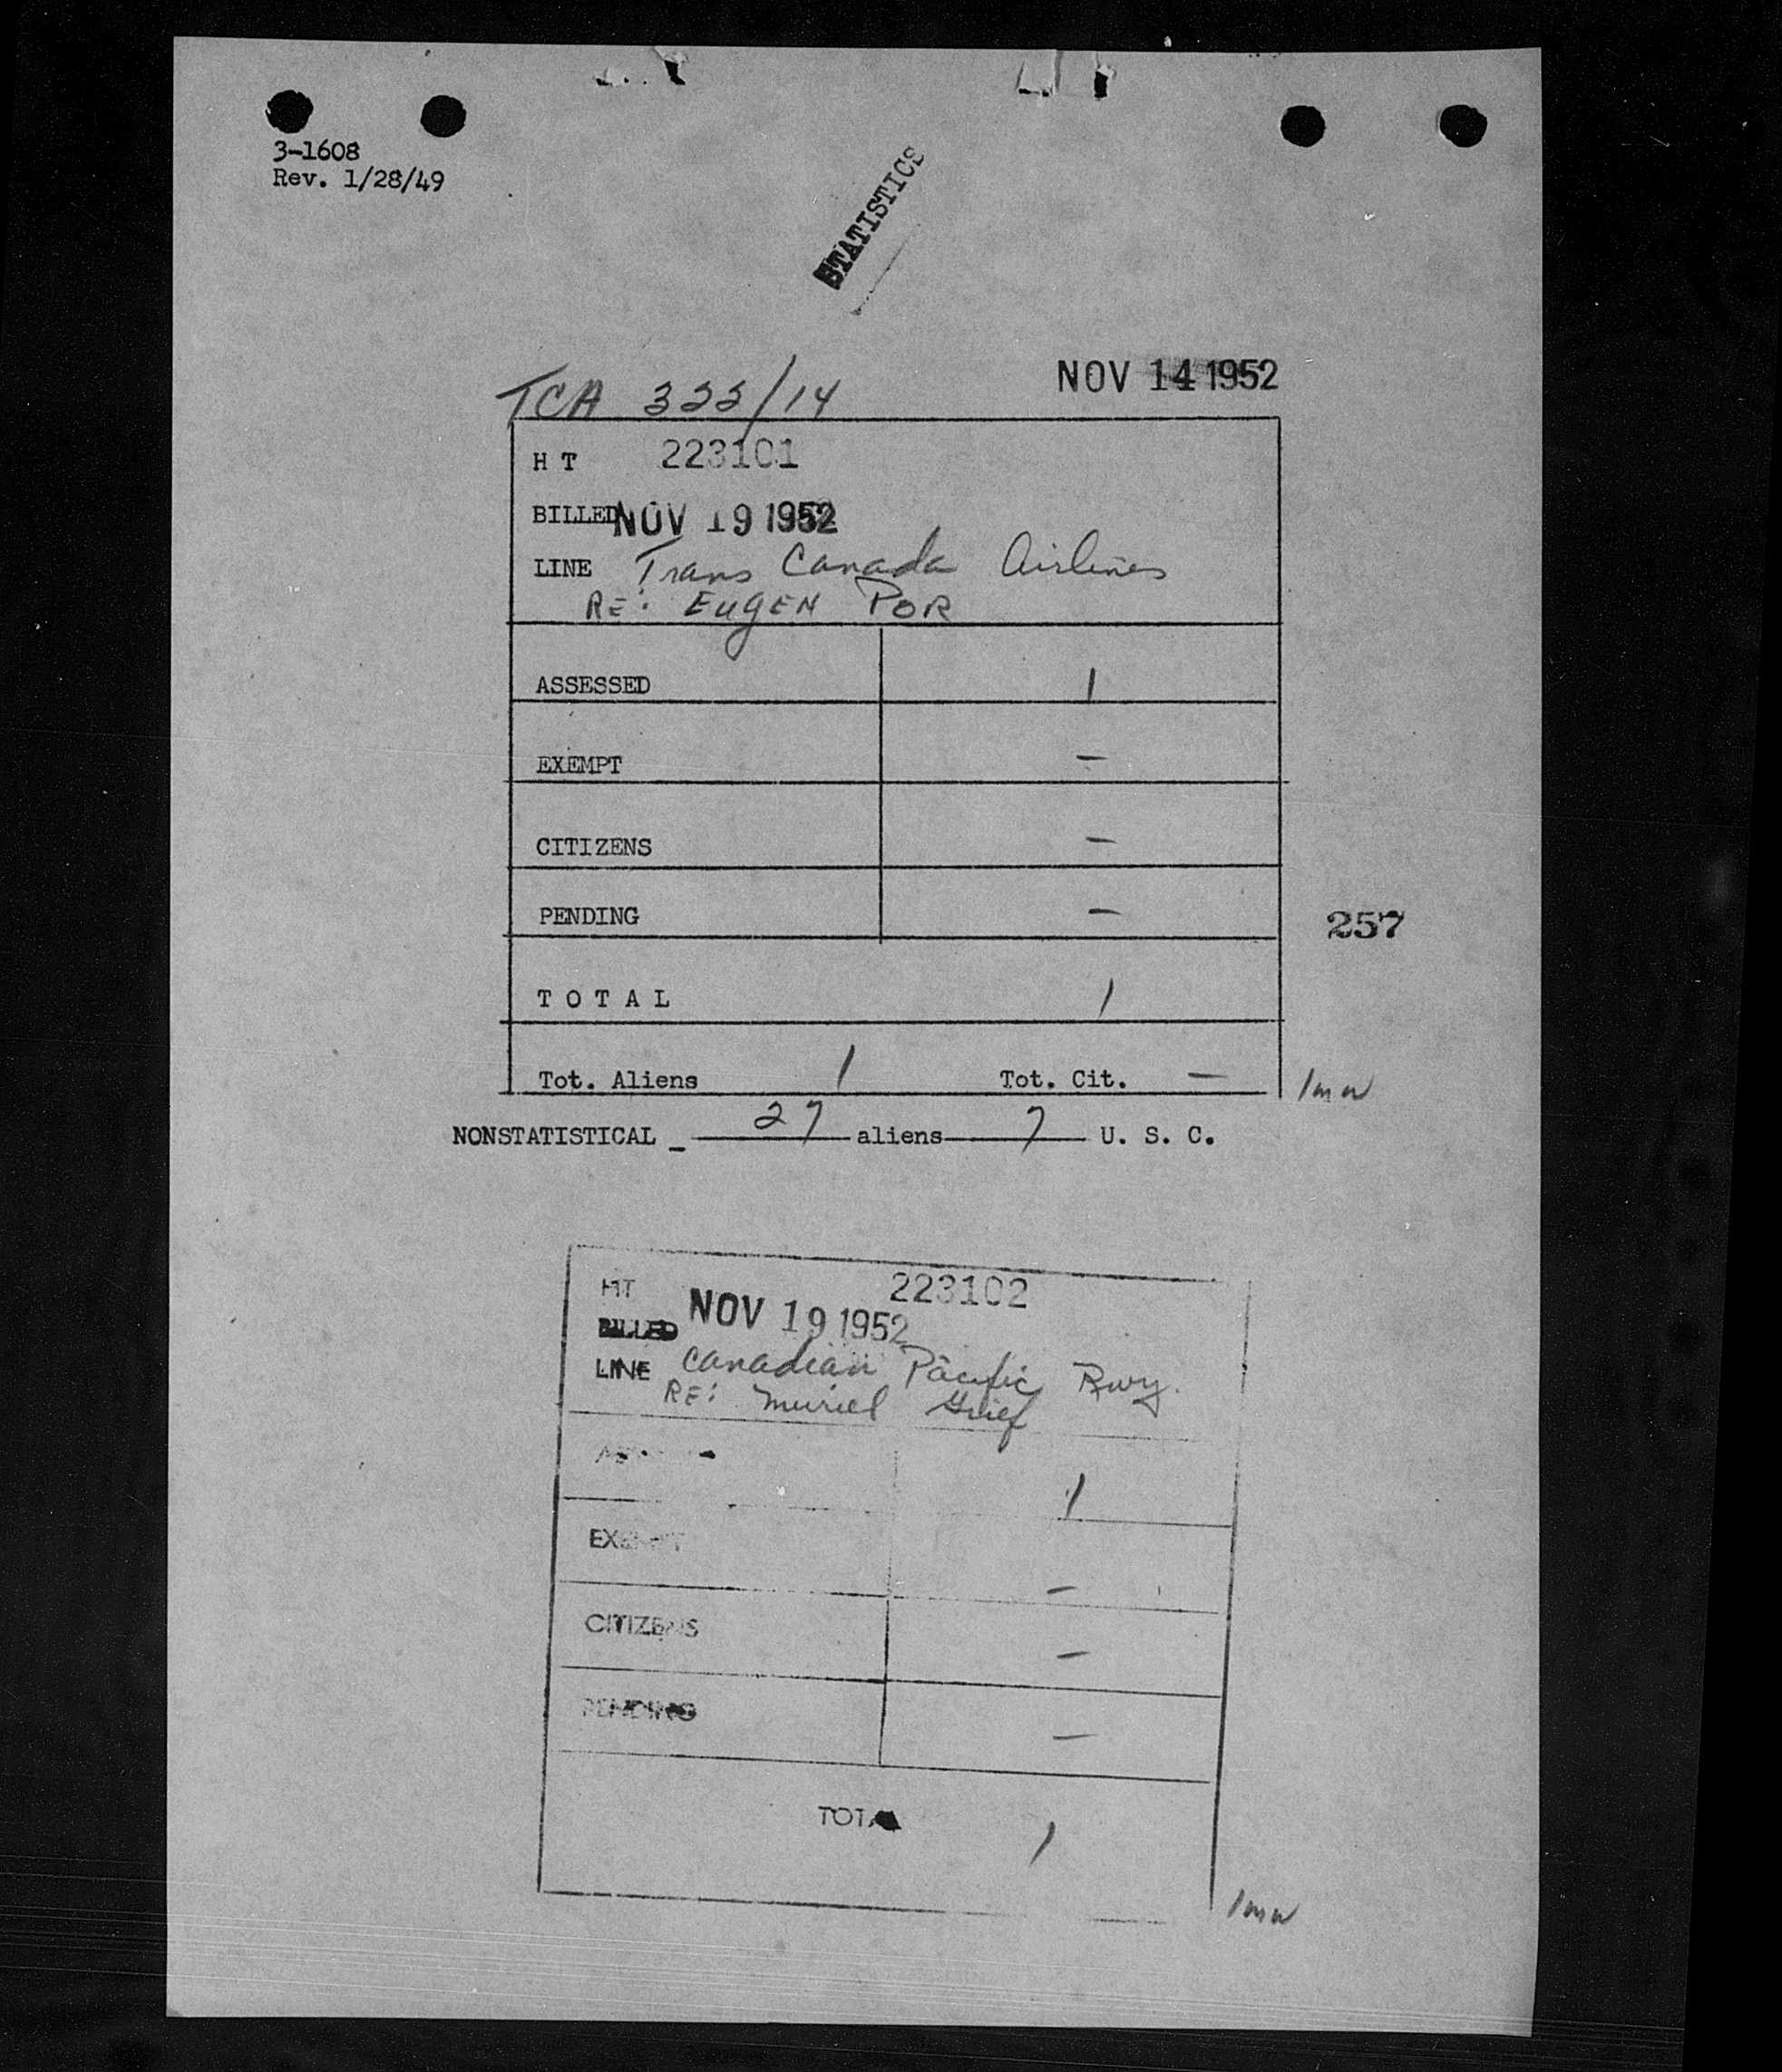 3-1608
Rev. 1/28/49
STATISTICS
TCA 333/14
NOV 14 1952
H T 223101
BILLED NOV 19 1952
LINE Trans Canada Airlines
RE: EUGEN POR
ASSESSED 1
EXEMPT –
CITIZENS –
PENDING –
257
T O T A L 1
Tot. Aliens 1 Tot. Cit. –
1 m w
NONSTATISTICAL - 27 aliens 7 U. S. C.
HT 223102
BILLED NOV 19 1952
LINE Canadian Pacific Rwy.
RE: Muriel Grief
1
EXEMPT –
CITIZENS –
PENDING –
TOTAL 1
1 m w